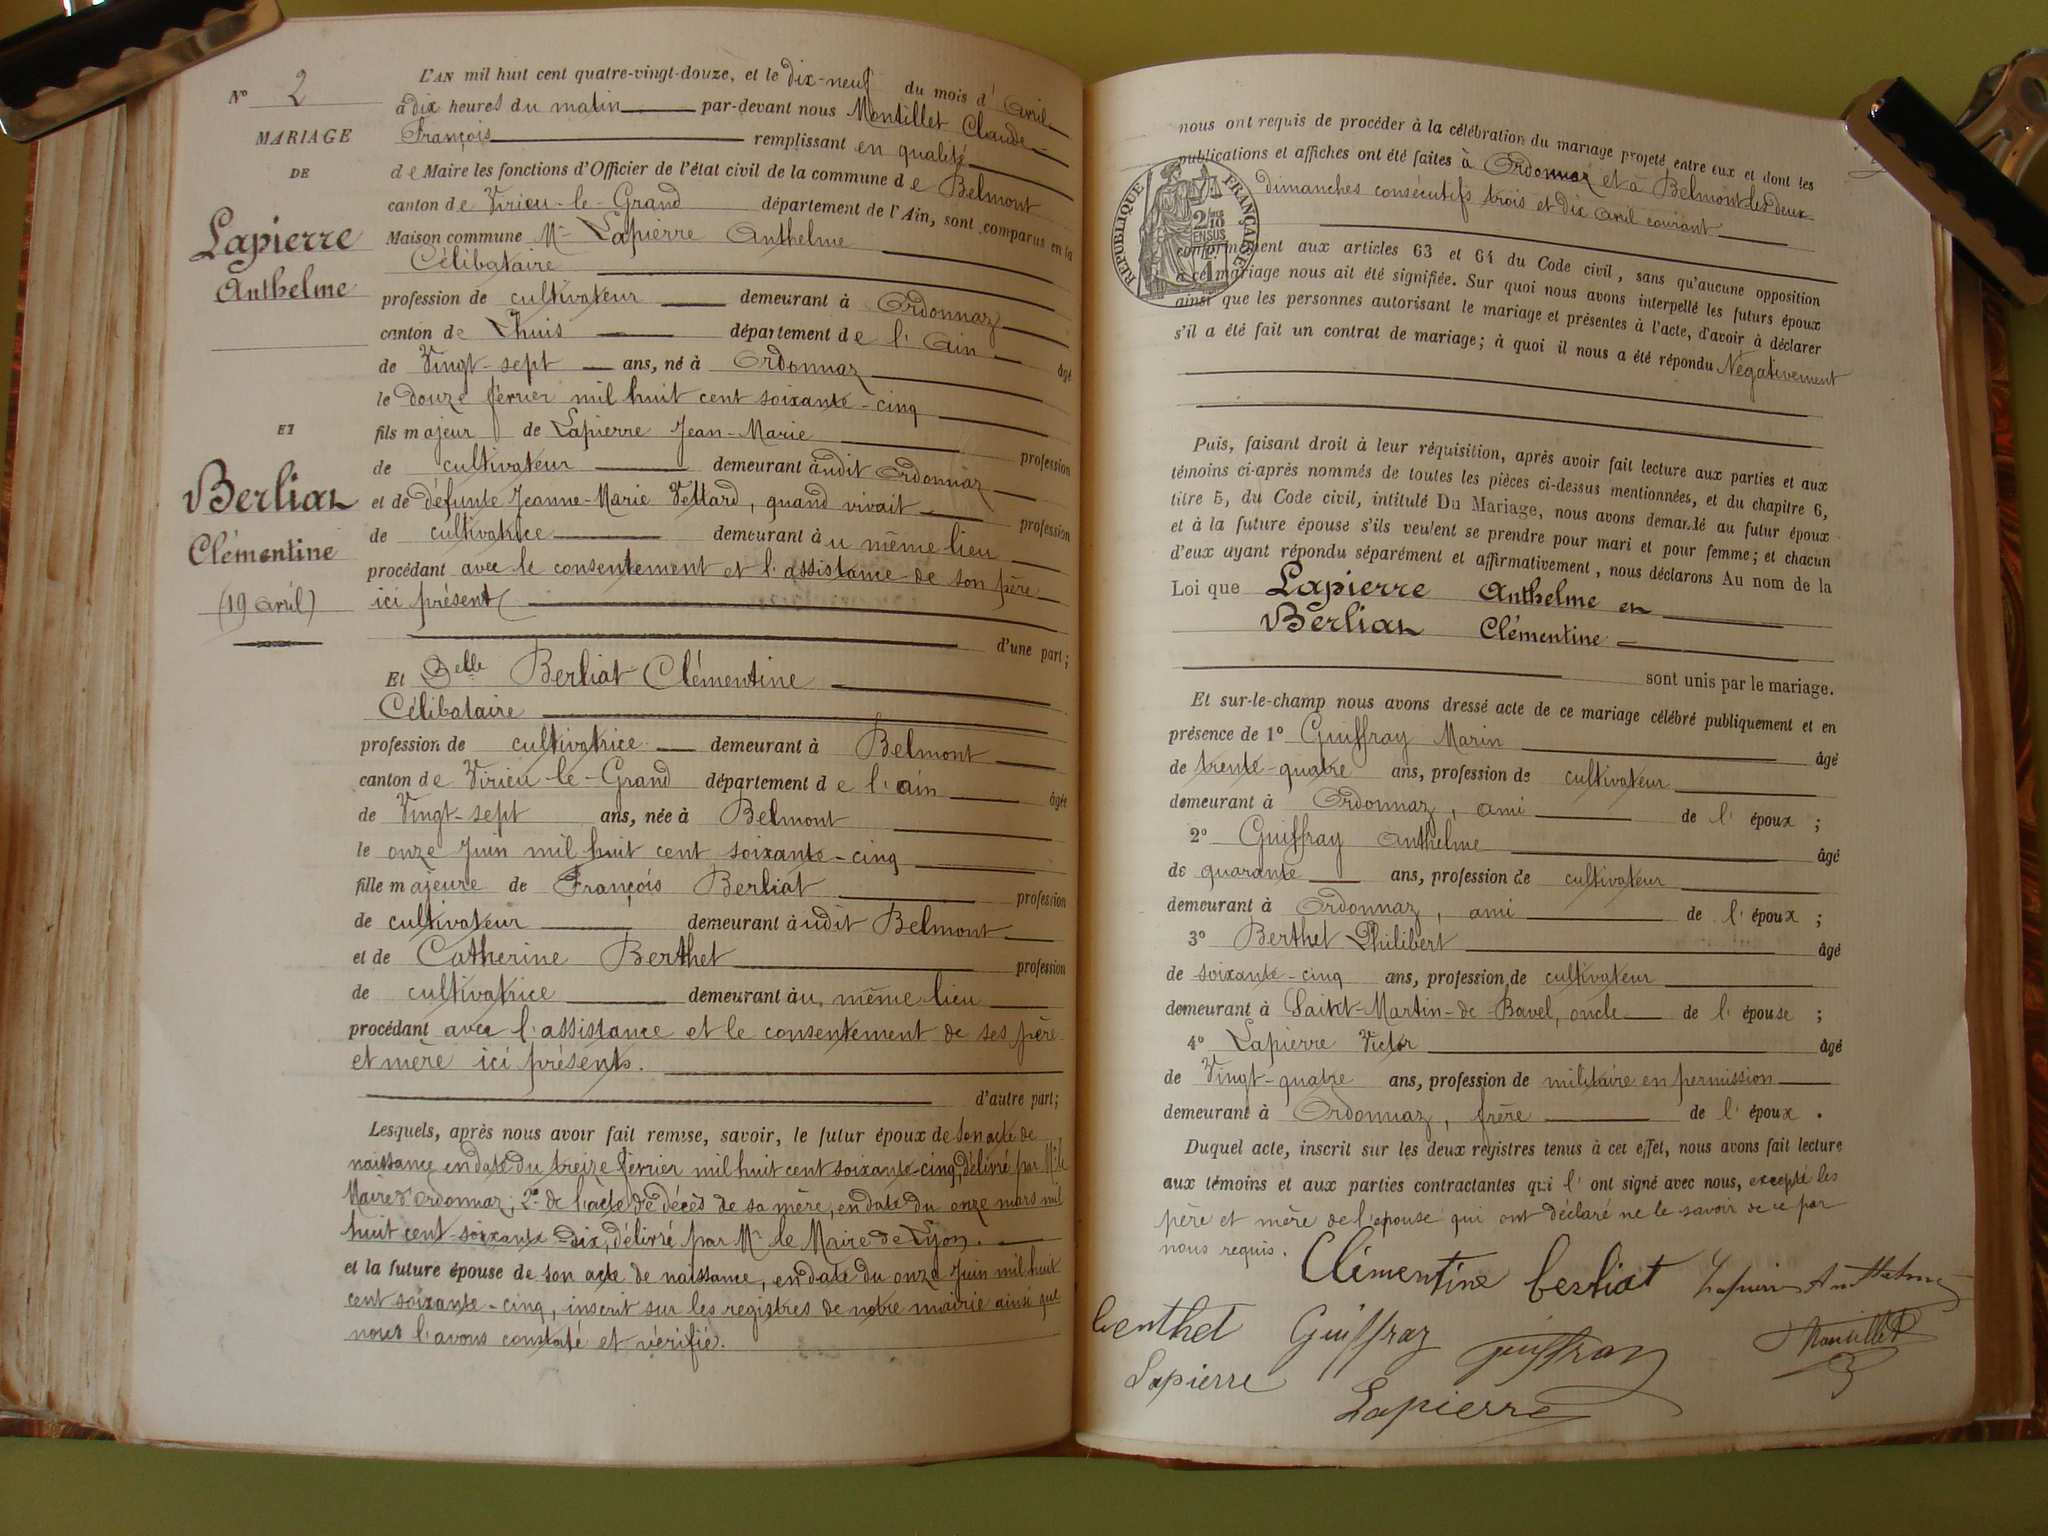 N° 2
MARIAGE
DE
Lapierre
Anthelme
ET
Berliat
Clémentine
(19 avril)
L'AN mil huit cent quatre-vingt-douze, et le dix-neuf du mois d'avril
à dix heures du matin par-devant nous Montillet Claude
François remplissant en qualité
de Maire les fonctions d'Officier de l'état civil de la commune de Belmont
canton de Virieu-le-Grand département de l'Ain, sont comparus en la
Maison commune Mr Lapierre Anthelme
Célibataire
profession de cultivateur demeurant à Ordonnaz
canton de Lhuis département de l'Ain âgé
de Vingt-sept ans, né à Ordonnaz
le douze février mil huit cent soixante-cinq
fils majeur de Lapierre Jean-Marie profession
de cultivateur demeurant audit Ordonnaz
et de défunte Jeanne-Marie Vettard, quand vivait profession
de cultivatrice demeurant au même lieu
procédant avec le consentement et l'assistance de son père
ici présent
d'une part;
Et Delle Berliat Clémentine
Célibataire
profession de cultivatrice demeurant à Belmont
canton de Virieu-le-Grand département de l'ain âgée
de Vingt-sept ans, née à Belmont
le onze Juin mil huit cent soixante-cinq
fille majeure de François Berliat profession
de cultivateur demeurant audit Belmont
et de Catherine Berthet profession
de cultivatrice demeurant au même lieu
procédant avec l'assistance et le consentement de ses père
et mère ici présents.
d'autre part;
Lesquels, après nous avoir fait remise, savoir, le futur époux de son acte de
naissance en date du treize février mil huit cent soixante-cinq, délivré par Mr le
Maire d'Ordonnaz; 2° de l'acte de décès de sa mère, en date du onze mars mil
huit cent-soixante-dix, délivré par Mr le Maire de Lyon.
et la future épouse de son acte de naissance, en date du onze Juin mil huit
cent soixante-cinq, inscrit sur les registres de notre mairie ainsi que
nous l'avons constaté et vérifié.
nous ont requis de procéder à la célébration du mariage projeté entre eux et dont les
publications et affiches ont été faites à Ordonnaz et à Belmont les deux
dimanches consécutifs trois et dix avril courant
RÉPUBLIQUE FRANÇAISE
2/10 EN SUS
conformément aux articles 63 et 64 du Code civil, sans qu'aucune opposition
à ce mariage nous ait été signifiée. Sur quoi nous avons interpellé les futurs époux
ainsi que les personnes autorisant le mariage et présentes à l'acte, d'avoir à déclarer
s'il a été fait un contrat de mariage; à quoi il nous a été répondu Négativement
Puis, faisant droit à leur réquisition, après avoir fait lecture aux parties et aux
témoins ci-après nommés de toutes les pièces ci-dessus mentionnées, et du chapitre 6,
titre 5, du Code civil, intitulé Du Mariage, nous avons demandé au futur époux
et à la future épouse s'ils veulent se prendre pour mari et pour femme; et chacun
d'eux ayant répondu séparément et affirmativement, nous déclarons Au nom de la
Loi que Lapierre Anthelme en
Berliat Clémentine
sont unis par le mariage.
Et sur-le-champ nous avons dressé acte de ce mariage célébré publiquement et en
présence de 1° Guiffray Marin âgé
de trente-quatre ans, profession de cultivateur
demeurant à Ordonnaz, ami de l'époux ;
2° Guiffray Anthelme âgé
de quarante ans, profession de cultivateur
demeurant à Ordonnaz, ami de l'époux ;
3° Berthet Philibert âgé
de soixante-cinq ans, profession de cultivateur
demeurant à Saint-Martin-de-Bavel, oncle de l'épouse ;
4° Lapierre Victor âgé
de Vingt-quatre ans, profession de militaire en permission
demeurant à Ordonnaz, frère de l'époux.
Duquel acte, inscrit sur les deux registres tenus à cet effet, nous avons fait lecture
aux témoins et aux parties contractantes qui l'ont signé avec nous, excepté les
père et mère de l'épouse qui ont déclaré ne le savoir de ce par
nous requis.
Clémentine berliat Lapierre Anthelme
berthet Guiffray Guiffray Montillet
Lapierre
Lapierre